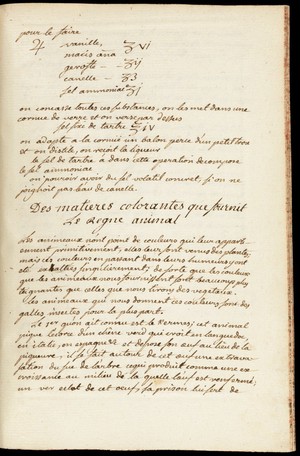 pour le faire
♃ vanille, ʒvi
macis ana
gerofle — ʒij
canelle — ʒ3
sel ammoniac ℥i
on concasse toutes ces substances, on les met dans une
cornue de verre et on verse par dessus
sel fixe de tartre ℥iv
on adapte a la cornue un balon percé d'un petit trou
et on distile, on reçoit la liqueur
le sel de tartre a dans cette operation decomposé
le sel ammoniac
on pouroit avoir du sel volatil concret, si on ne
joignoit pas l'eau de canelle.
Des matieres colorantes que fournit
Le Regne animal
Les animeaux n'ont point de couleurs qui leur appart-
iennent primitivement, elles leur sont venues des plantes,
mais ces couleurs en passant dans leurs humeurs y ont
été exaltées singulierement; de sorte que les couleurs
que les animeaux nous fournissent sont beaucoup plus
piquantes que celles que nous tirons des vegetaux.
Les animeaux qui nous donnent ces couleurs sont des
galles insectes pour la plus part.
Le 1er qu'on ait connu est le Kermes; cet animal
pique l'arbre d'un chene verd qui croit en languedoc,
en italie, en espagne et depose son œuf au lieu de la
piqueure; il se fait autour de cet œuf une extrava-
sation du suc de l'arbre ce qui produit comme une ex-
croissance au milieu de la quelle l'œuf est renfermé;
un ver eclot de cet œuf, sa prison lui sert de